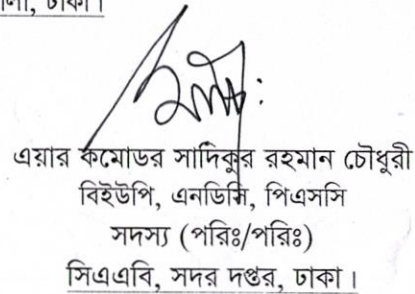 ঢাকা।
এয়ার কমোডর সাদিকুর রহমান চৌধুরী
বিইউপি, এনডিসি, পিএসসি
সদস্য (পরিঃ/পরিঃ)
সিএএবি, সদর দপ্তর, ঢাকা।